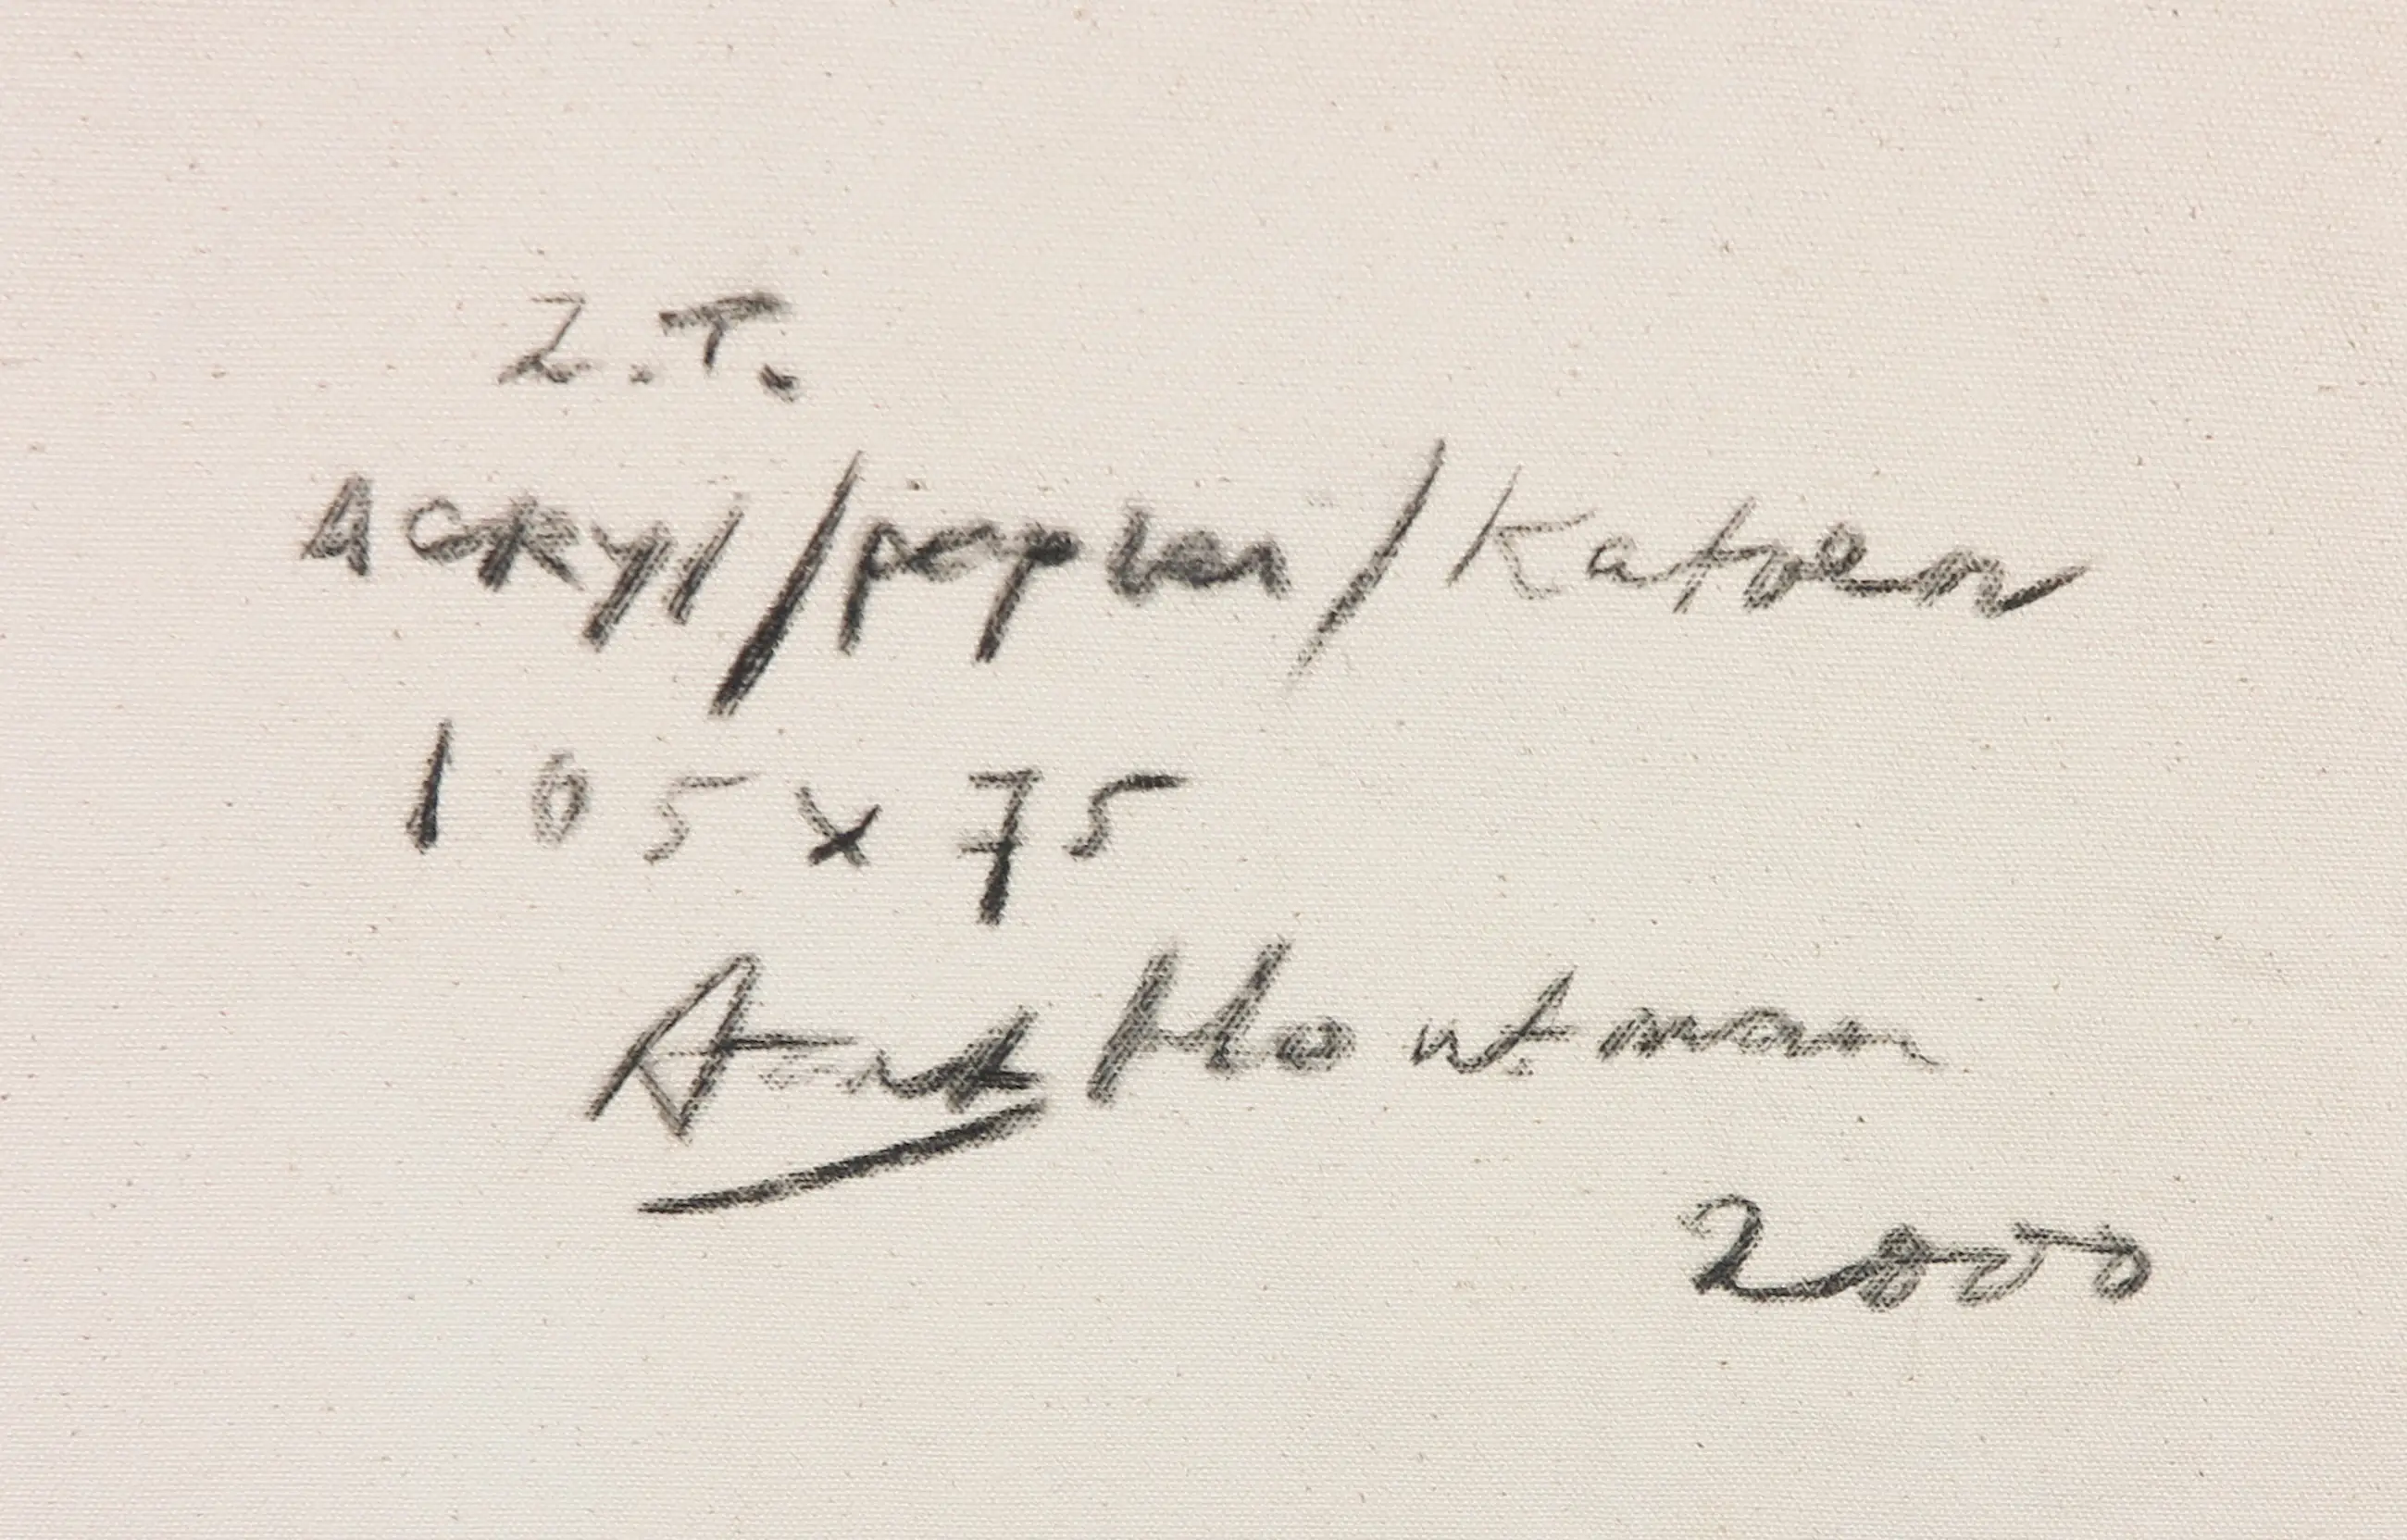 Z.T.
Acryl/papier/Katoen
105 x 75
Houtman
2000